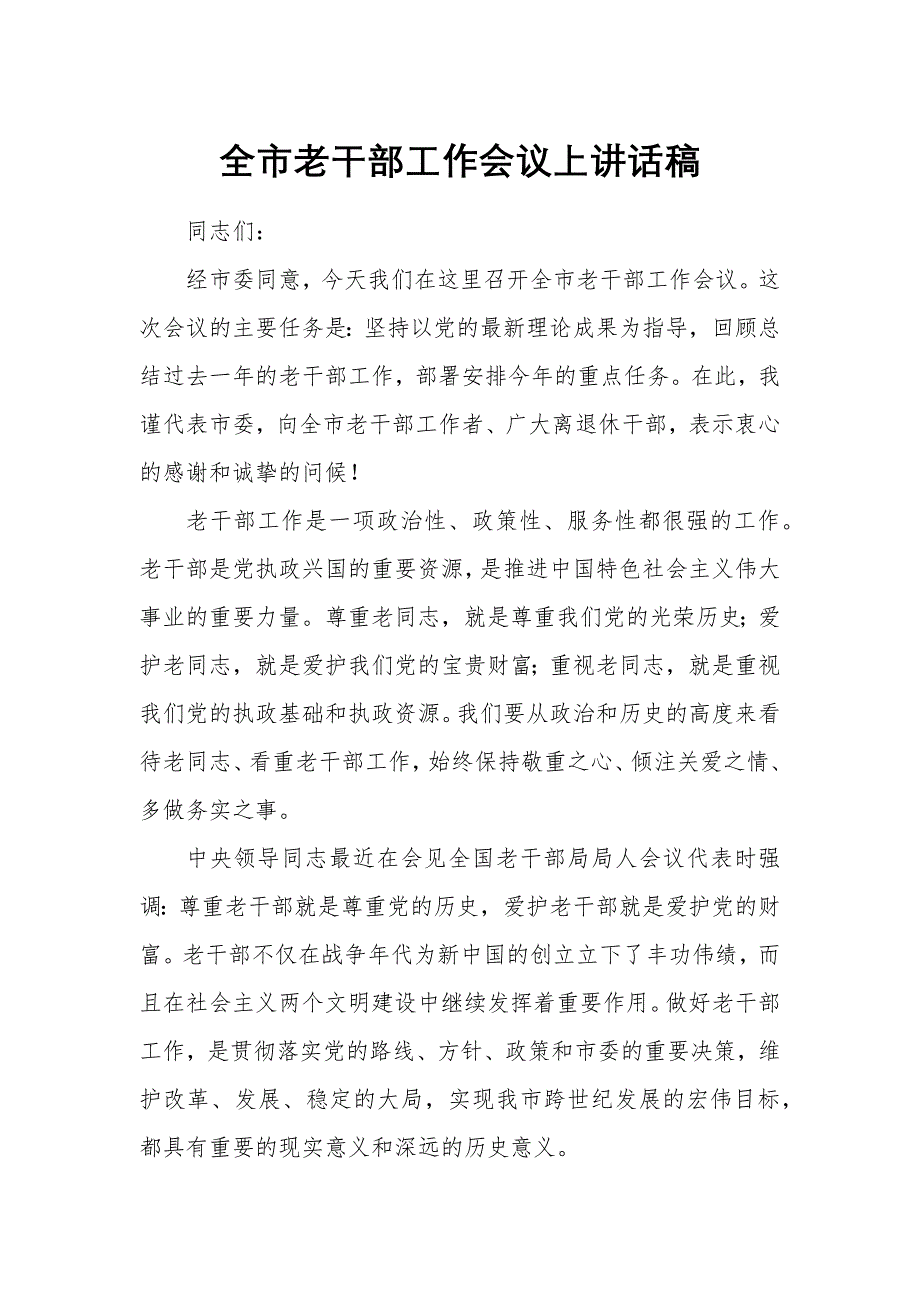 全市老干部工作会议上讲话稿
同志们：
经市委同意，今天我们在这里召开全市老干部工作会议。这
次会议的主要任务是：坚持以党的最新理论成果为指导，回顾总
结过去一年的老干部工作，部署安排今年的重点任务。在此，我
谨代表市委，向全市老干部工作者、广大离退休干部，表示衷心
的感谢和诚挚的问候！
老干部工作是一项政治性、政策性、服务性都很强的工作。
老干部是党执政兴国的重要资源，是推进中国特色社会主义伟大
事业的重要力量。尊重老同志，就是尊重我们党的光荣历史；爱
护老同志，就是爱护我们党的宝贵财富；重视老同志，就是重视
我们党的执政基础和执政资源。我们要从政治和历史的高度来看
待老同志、看重老干部工作，始终保持敬重之心、倾注关爱之情、
多做务实之事。
中央领导同志最近在会见全国老干部局局人会议代表时强
调：尊重老干部就是尊重党的历史，爱护老干部就是爱护党的财
富。老干部不仅在战争年代为新中国的创立立下了丰功伟绩，而
且在社会主义两个文明建设中继续发挥着重要作用。做好老干部
工作，是贯彻落实党的路线、方针、政策和市委的重要决策，维
护改革、发展、稳定的大局，实现我市跨世纪发展的宏伟目标，
都具有重要的现实意义和深远的历史意义。